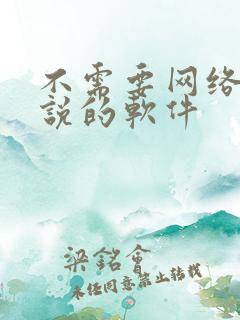 不需要网络
説的軟件
梁銘會
未经同意禁止转载